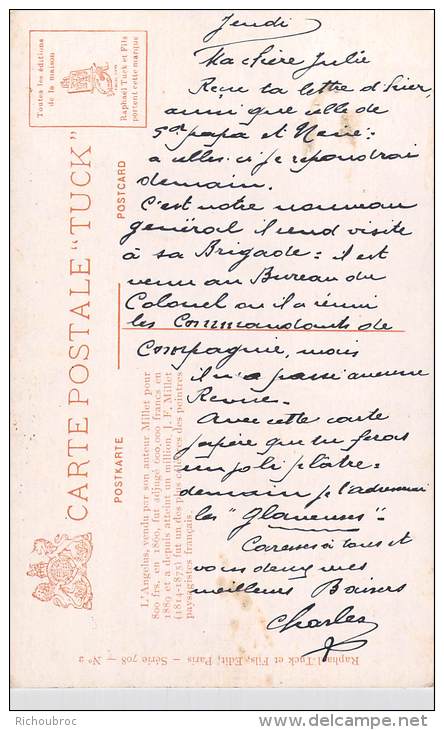 Jeudi
Ma chère Julie
Reçu ta lettre d'hier,
ainsi que celle de
ton papa et
à celles ci je repondrai
demain.
C'est notre nouveau
général il rend visite
à sa Brigade: il est
venu au Bureau du
Colonel ou il a réuni
les Commandants de
Compagnie, mais
il n'a passé aucune
Revue.
Avec cette carte
j'spère que tu feras
un joli plâtre.
demain je t'adresserai
les "Glaneuses".
Caresses à tous et
vous deux mes
meilleurs Baisers
Charles
Toutes les éditions
de la maison
Raphael Tuck et Fils
portent cette marque
CARTE POSTALE "TUCK"
POSTCARD
POSTKARTE
L'Angelus, vendu par son auteur Millet pour
800 frs. en 1860, fut adjugé 600,000 francs en
1889 et a depuis atteint un million. J. F. Millet
(1814-1875) fut un des plus célèbres des peintres
paysagistes français.
Raphael Tuck et Fils, Edit, Paris — Série 708 — No 2
Copyright © Richoubroc
delcampe.net